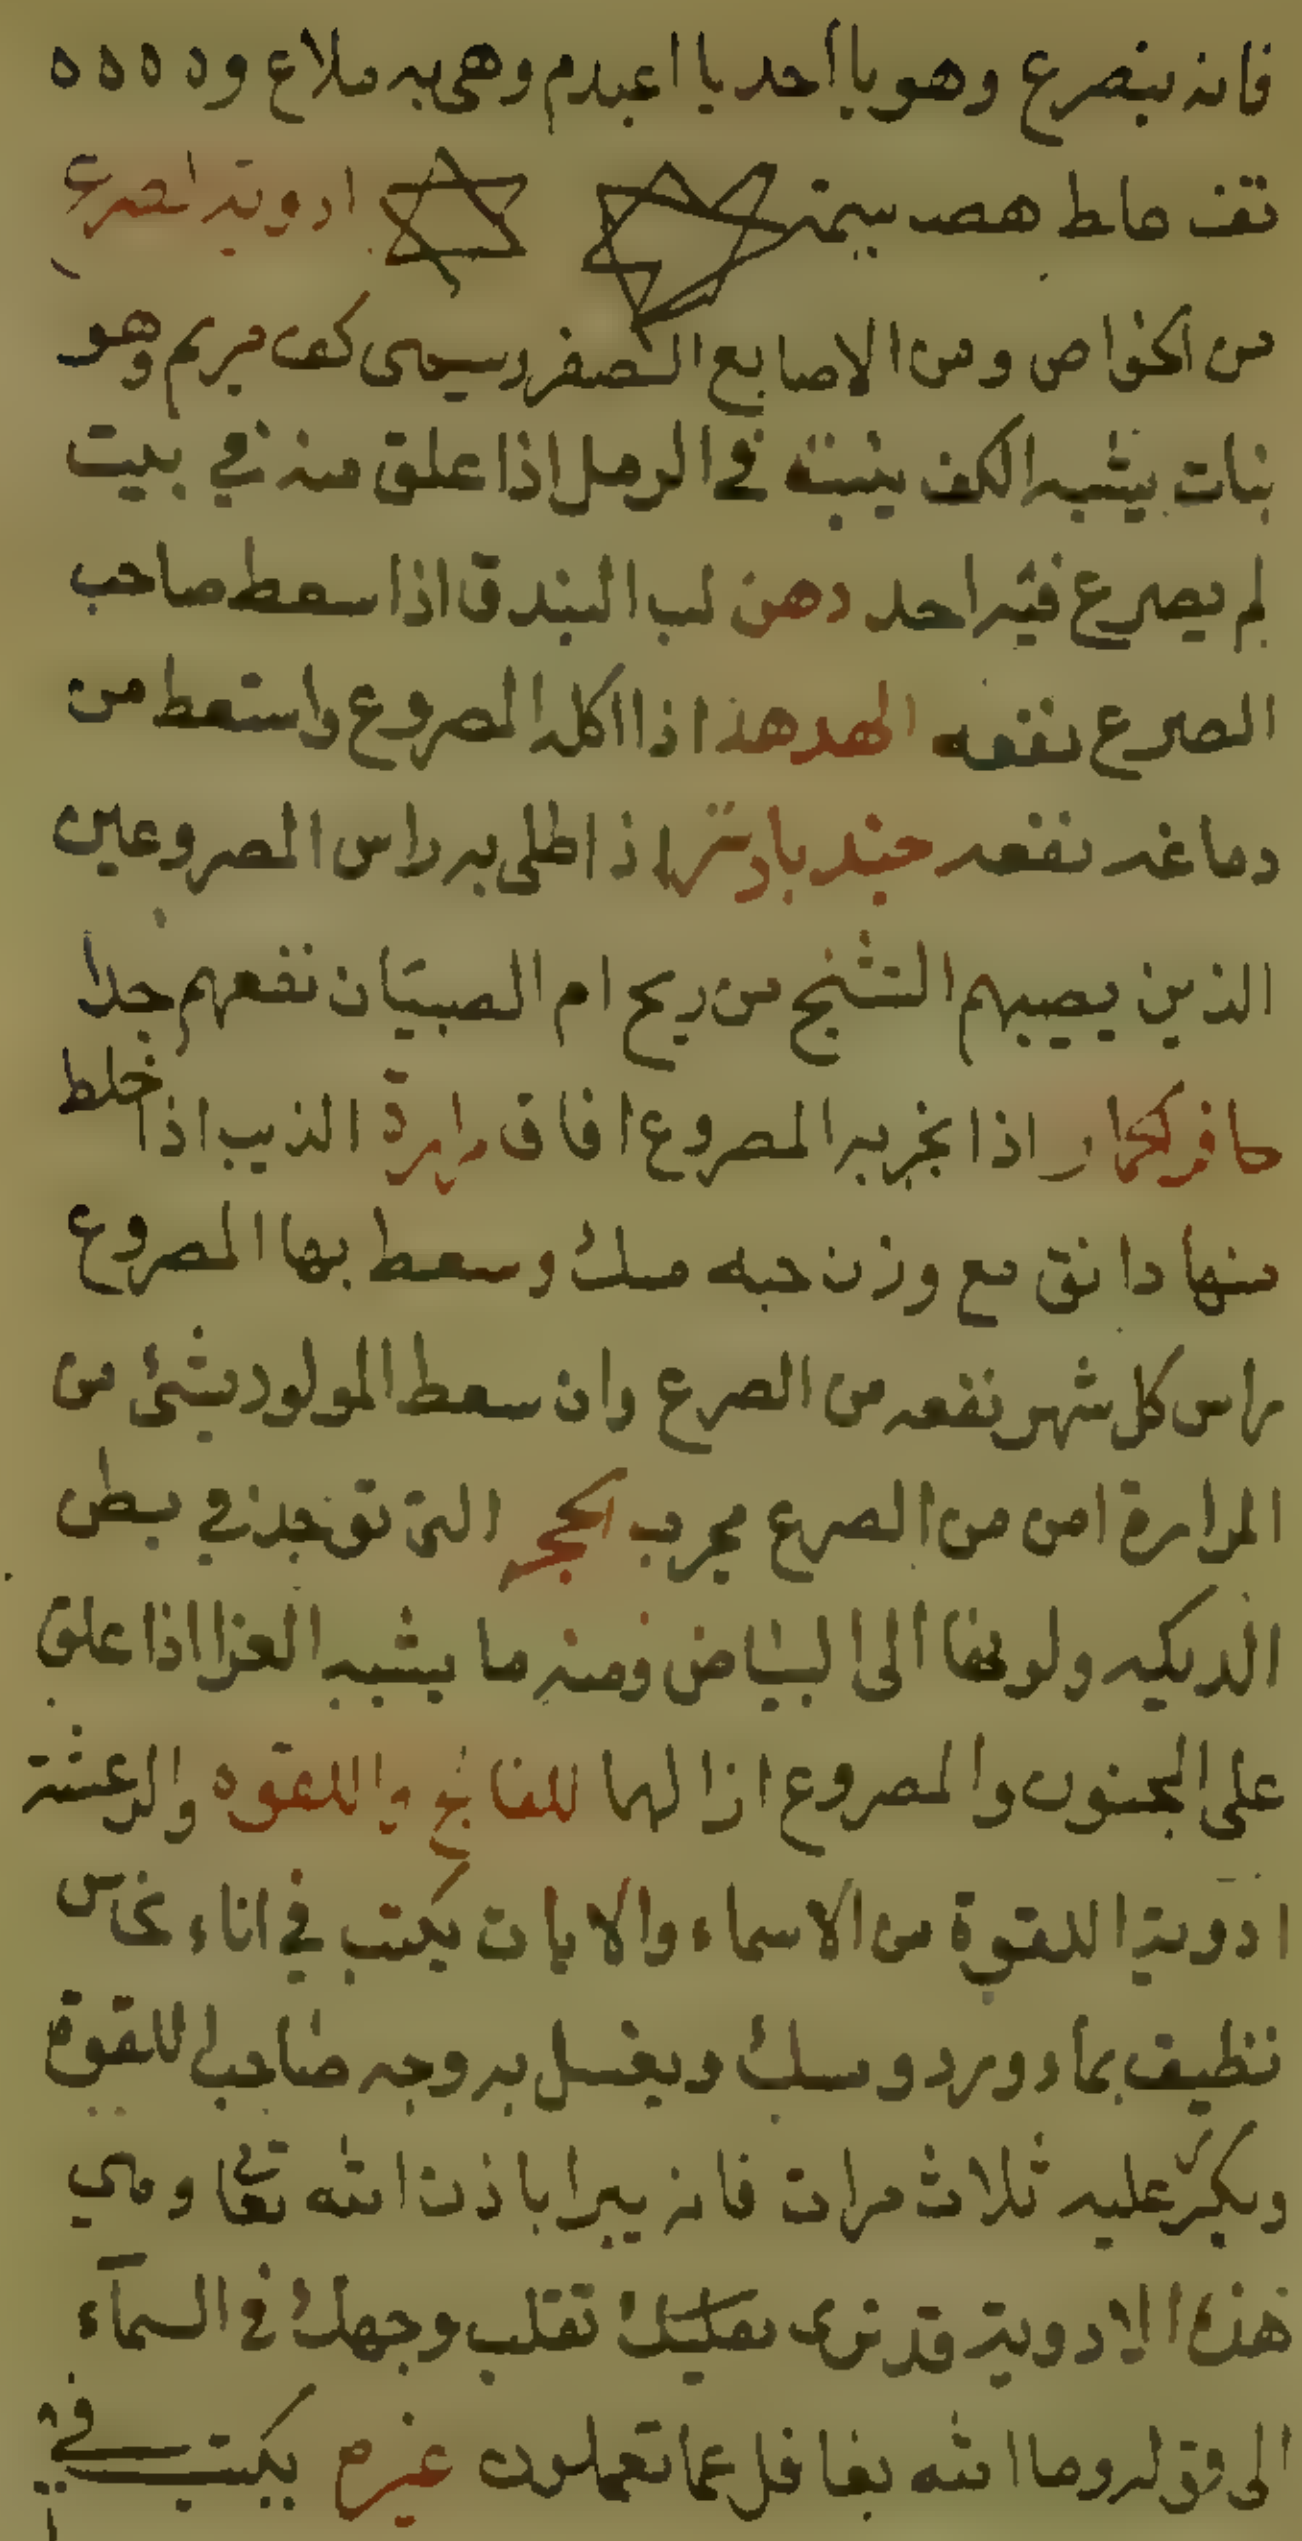 فانه ينصرع وهو يا احد يا اعبدم وهى به ملاع ود ه ه ه
تقف ماط هصد بيمة ادوية لصرع
من الخواص ومن الاصابع الصفر وسيمى كف مريم وهو
نبات يشبه الكف ينبت في الرمل اذا علق منه في بيت
لم يصرع فيه احد دهن لب البندق اذا سعط صاحب
الصرع نفعه الهدهد اذا اكله المصروع واستعط من
دماغه نفعه جندبادستر اذ اطلى به راس المصروعين
الذين يصيبهم التشنج من ريح ام الصبيان نفعهم جدا
حافر الحمار اذا بخر به المصروع افاق مرارة الذيب اذا خلط
منها دانق مع وزن حبه مسك وسعط بها المصروع
راس كل شهر نفعه من الصرع وان سعط المولود بشئ من
المرارة امن من الصرع مجرب الحجر التى توجد في بطن
الديكه ولونها الى البياض ومنه ما يشبه العزا اذا علق
على المجنون والمصروع ازالها للفالج واللقوه والرعشة
ادوية اللقوة من الاسماء والايات يكتب في اناء نحاس
نظيف بماء ورد ومسك ويغسل به وجه صاحب اللقوة
ويكرر عليه ثلاث مرات فانه يبرا باذن الله تعا وهي
هذه الادوية قد نرى تقلب وجهك في السماء
الى قوله وما الله بغافل عما تعملون غيره يكتب في